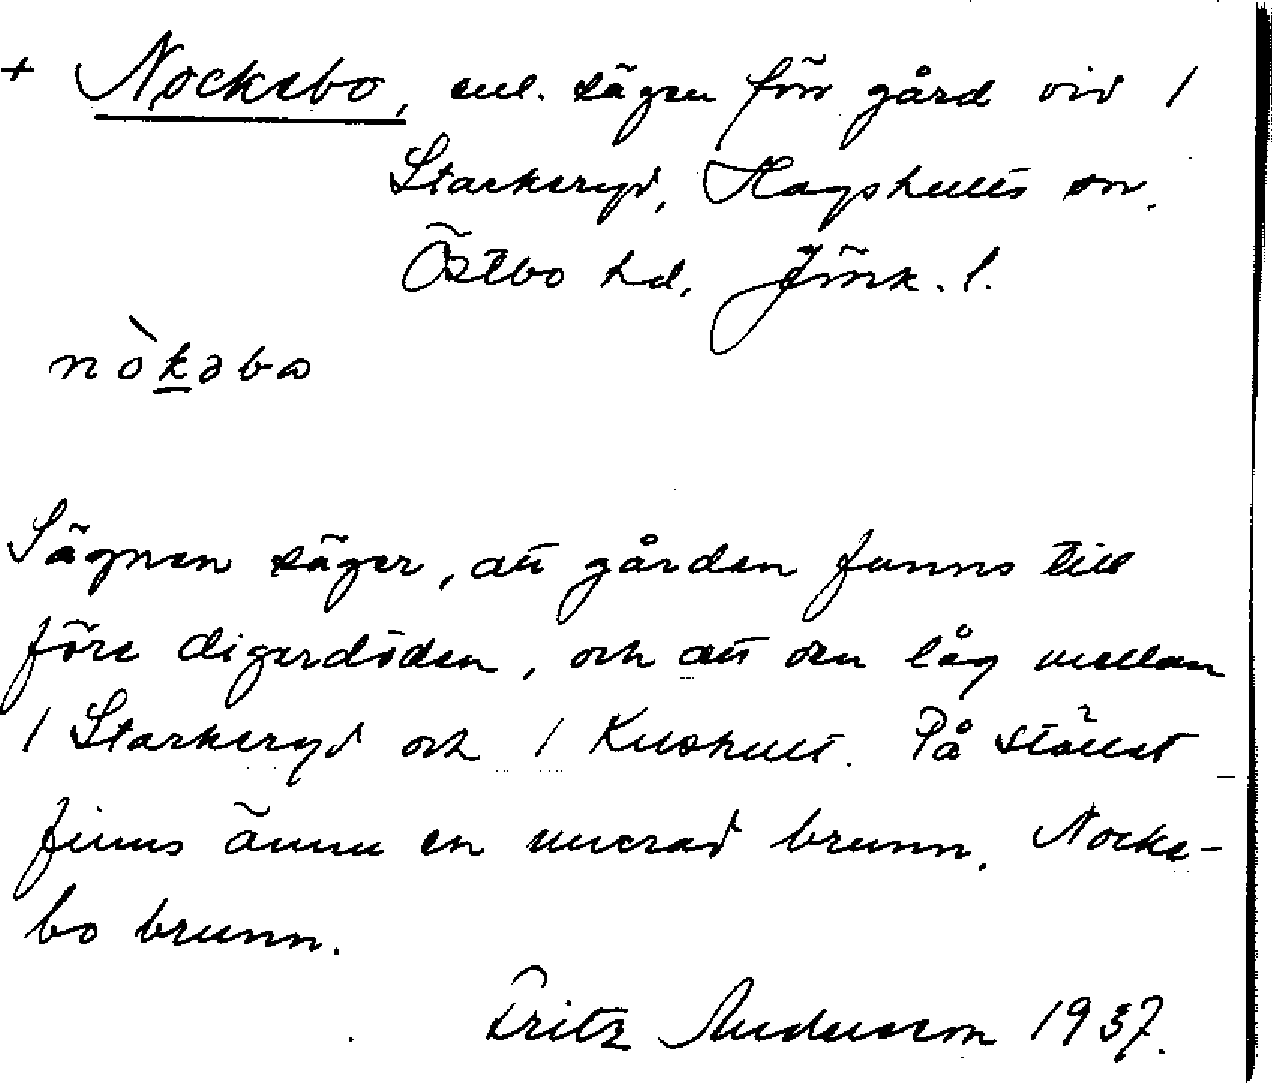 + Nockebo, enl. sägen för gård vid /
Starkeryd, Hagshults sn.
Östbo hd, Jönk. l.
nòkəbo
Sägnen säger, att gården fanns till
före digerdöden, och att den låg mellan
/ Starkeryd och / Kushult. På stället
finns ännu en murad brunn, Nocke-
bo brunn.
Fritz Andersson 1937.